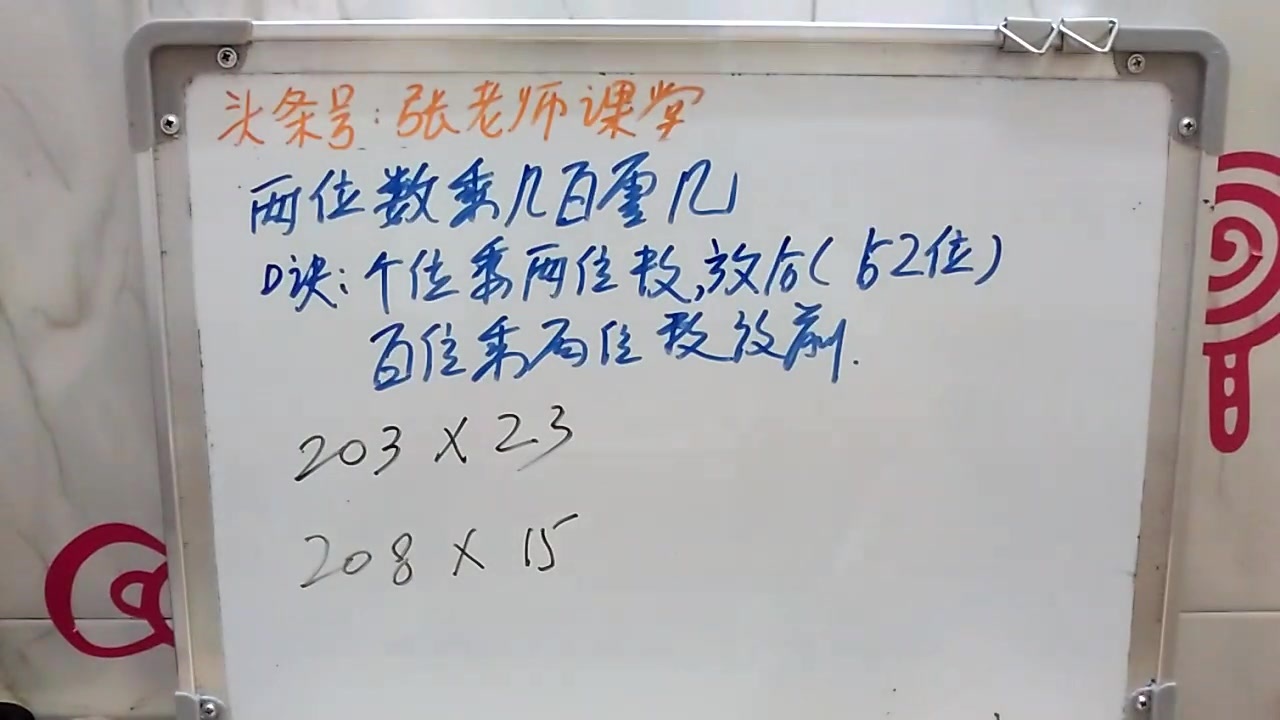 头条号:张老师课堂
两位数乘几百零几
口诀:个位乘两位数,放后(占2位)
百位乘两位数放前.
203×23
208×15